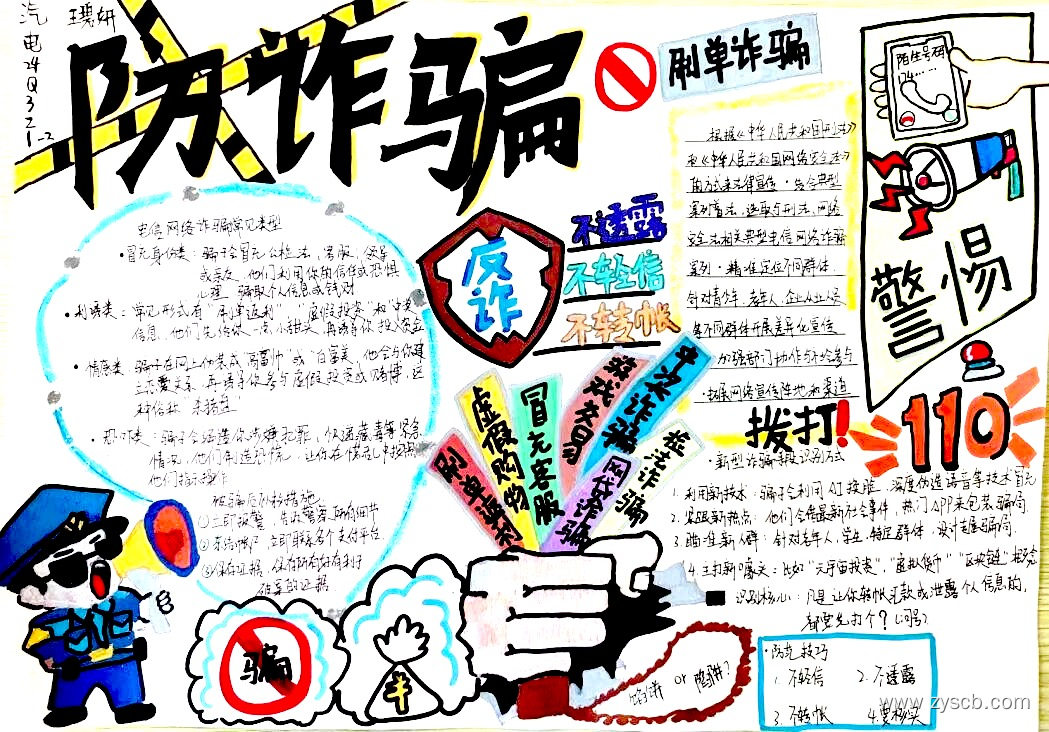 汽电24Q321-2
防诈骗
刷单诈骗
根据《中华人民共和国刑法》
和《中华人民共和国网络安全法》
的方式来法律宣传·结合典型
案例普法,选取与刑法、网络
安全法相关典型电信网络诈骗
案例·精准定位不同群体
针对青少年、老年人、企业从业人员
等不同群体开展差异化宣传
·加强部门协作与社会参与
·拓展网络宣传阵地和渠道
陌生号码
174……
警惕
电信网络诈骗常见类型
·冒充身份类:骗子会冒充公检法,客服,领导
或亲友,他们利用你的信任或恐惧
心理,骗取个人信息或钱财
·利诱类:常见形式有"刷单返利""虚假投资"和"中奖"
信息,他们先给你一点小甜头,再诱导你投入资金
·情感类:骗子在网上伪装成"高富帅"或"白富美",他会与你建
立恋爱关系,再诱导你参与虚假投资或赌博,这
种俗称"杀猪盘"
·恐吓类:骗子会编造你涉嫌犯罪,快递藏毒等紧急
情况,他们制造恐慌,让你在慌乱中按照
他们指示操作
被骗后补救措施
①立即报警,告诉警察所有细节
②冻结账户,立即联系各个支付平台
③保存证据,保存所有好有利于
破案的证据
反诈
不透露
不轻信
不转帐
刷单返利
虚假购物
冒充客服
游戏交易
中奖诈骗
网贷诈骗
公检法诈骗
拨打!110
·新型诈骗手段识别方式
1.利用新技术:骗子会利用AI换脸,深度伪造语音等技术冒充
2.紧跟新热点:他们会借最新社会事件,热门APP来包装骗局
3.瞄准新人群:针对老年人,学生,特定群体,设计专属骗局.
4.主打新噱头:比如"元宇宙投资","虚拟货币""区块链"概念
识别核心:凡是让你转帐交款或泄露个人信息的,
都要先打个?(问号)
骗
馅饼 or 陷阱?
·防范技巧
1.不轻信 2.不透露
3.不转帐 4.要核实
www.zyscb.com